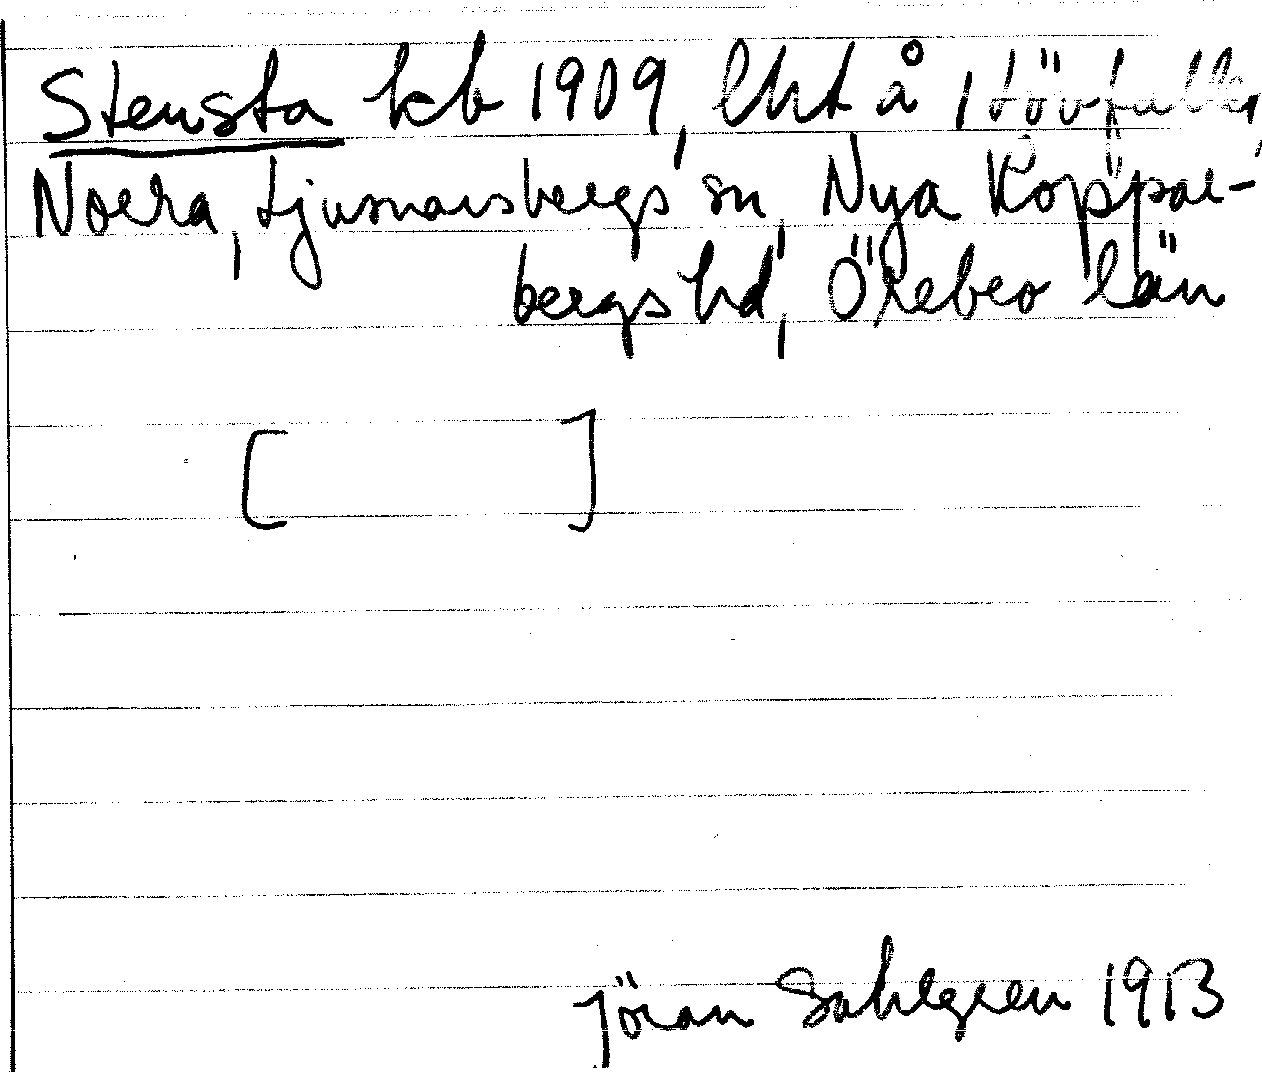 Stensta kb 1909, lht å Lövfallen,
Norra, Ljusnarsbergs sn, Nya Koppar-
bergs hd, Örebro län
[ ]
Jöran Sahlgren 1913